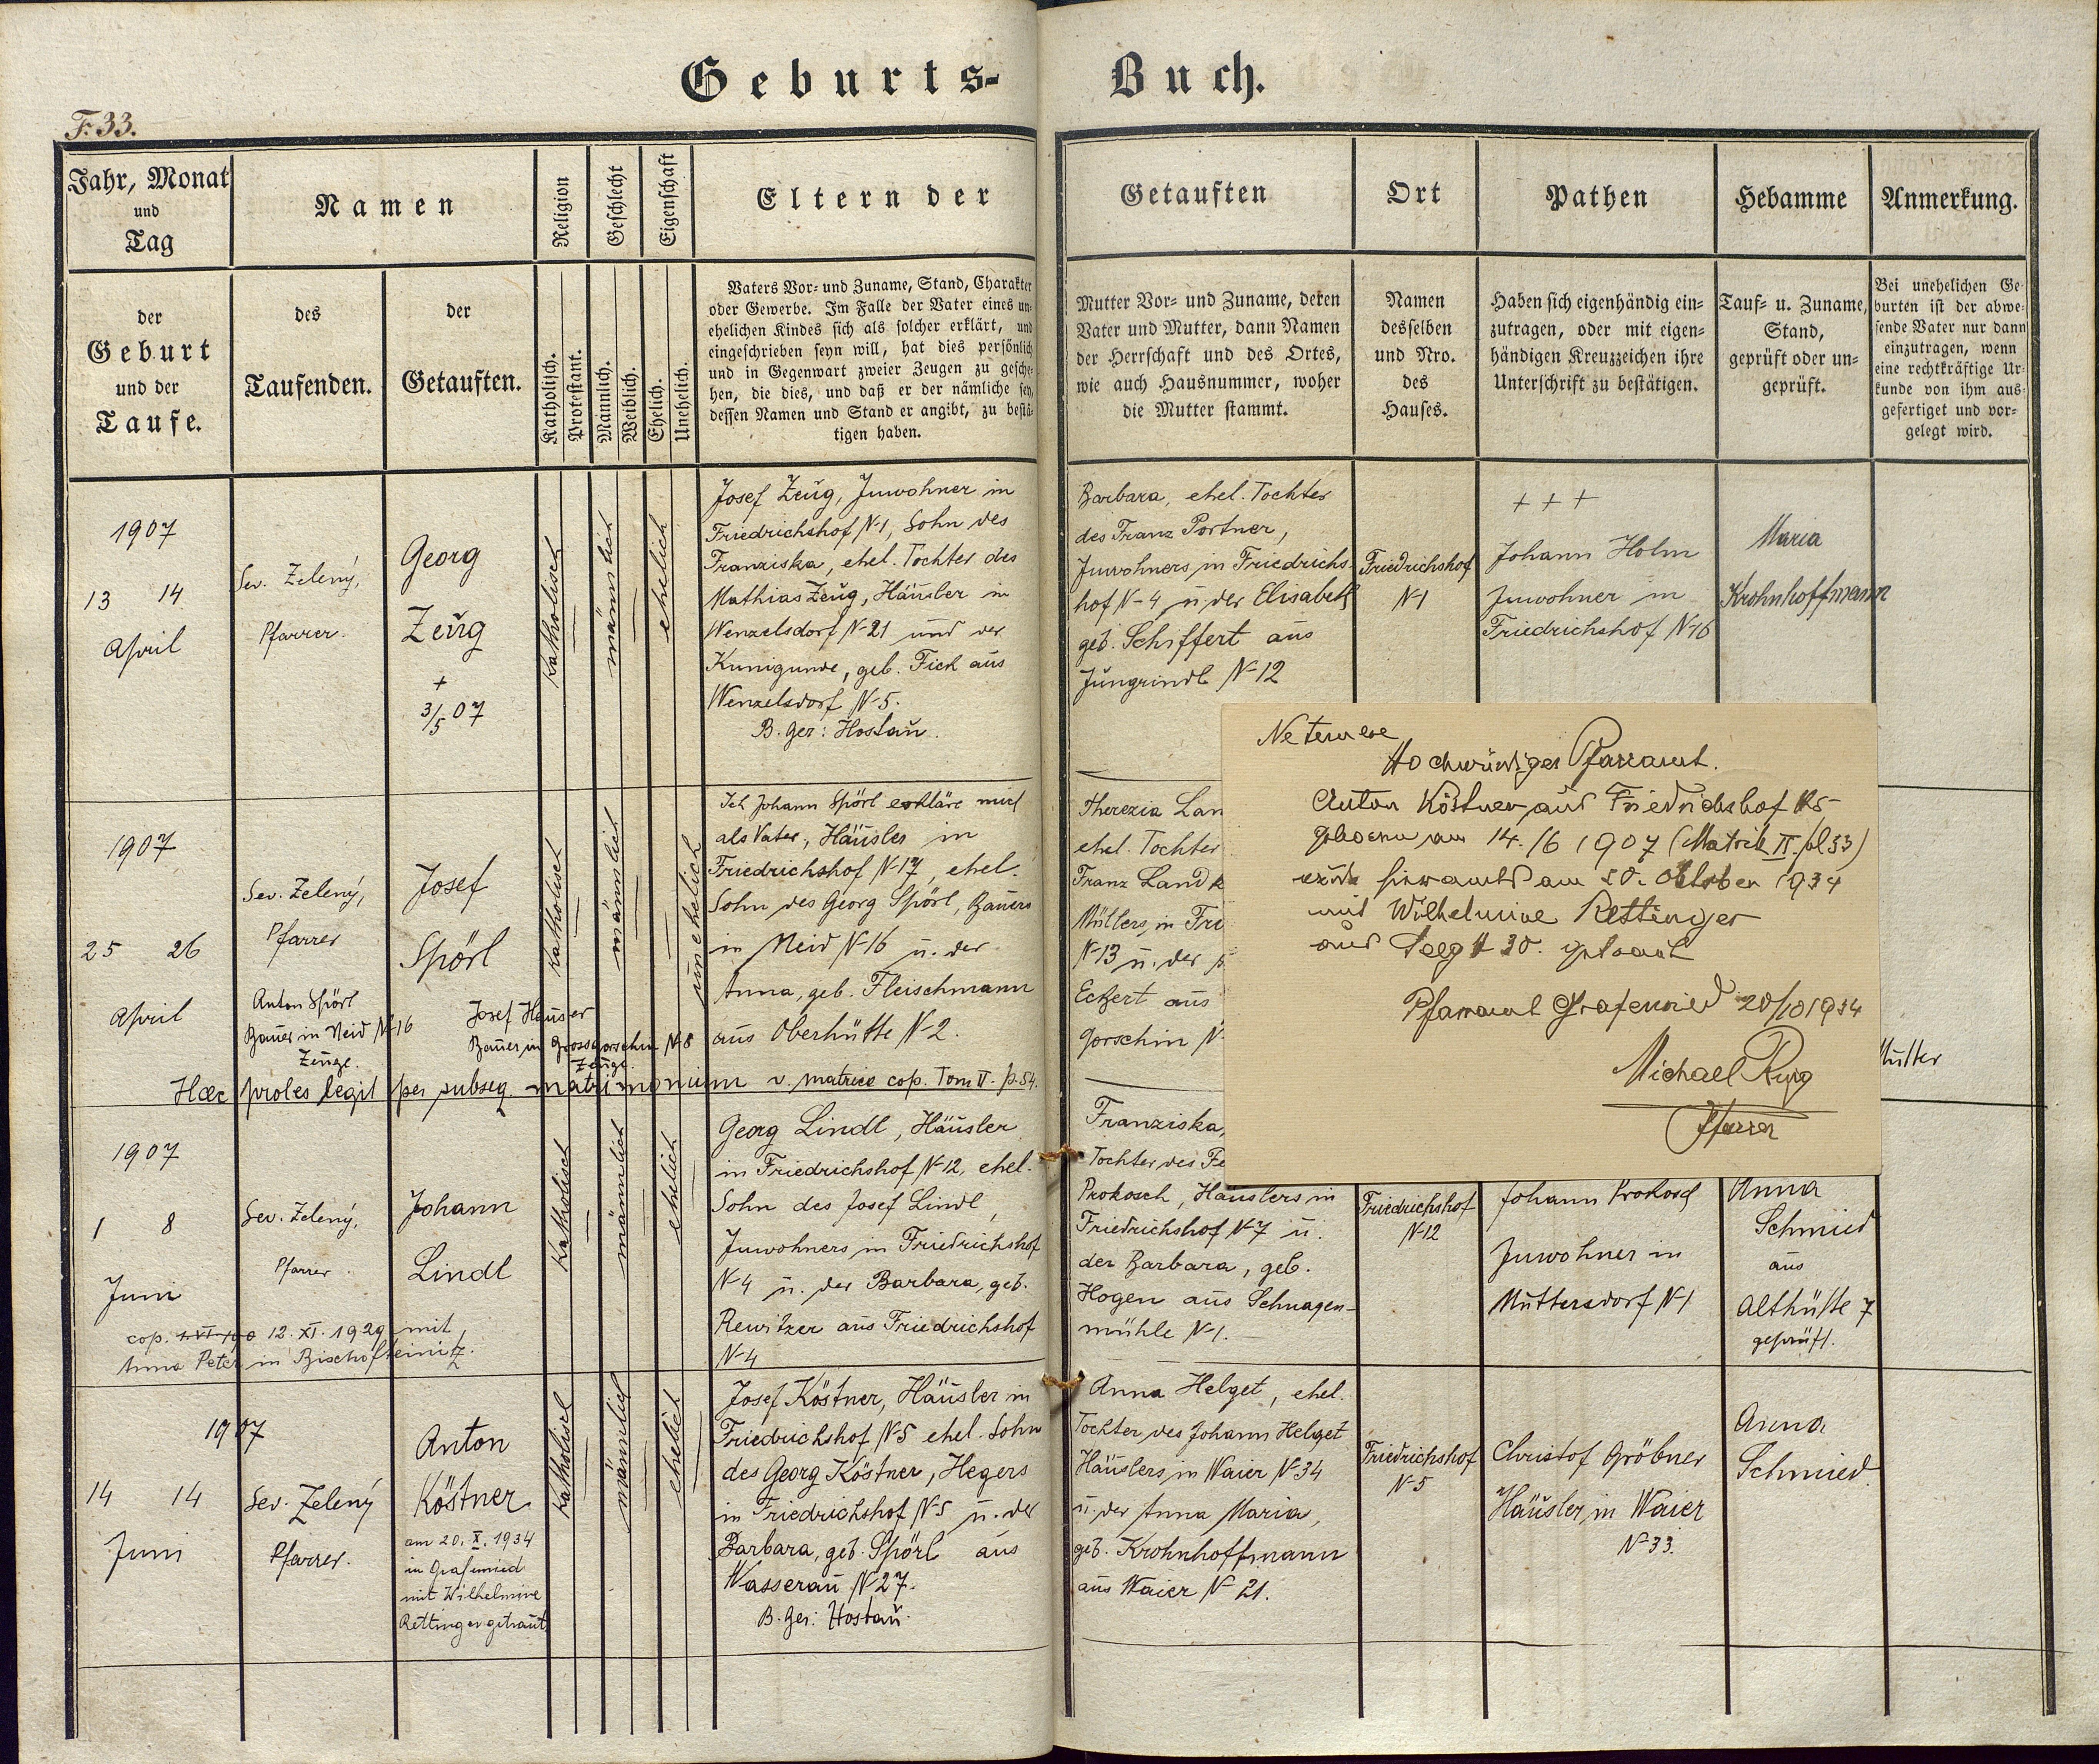 Geburts- Buch.
F. 33.
Jahr, Monat
und
Tag
Namen
Religion
Geschlecht
Eigenschaft
Eltern der
Getauften
Ort
Pathen
Hebamme
Anmerkung.
der
Geburt
und der
Taufe.
des
Taufenden.
der
Getauften.
Katholisch.
Protestant.
Männlich.
Weiblich.
Ehelich.
Unehelich.
Vaters Vor- und Zuname, Stand, Charakter
oder Gewerbe. Im Falle der Vater eines un-
ehelichen Kindes sich als solcher erklärt, und
eingeschrieben seyn will, hat dies persönlich
und in Gegenwart zweier Zeugen zu gesche-
hen, die dies, und daß er der nämliche sey,
dessen Namen und Stand er angibt, zu bestä-
tigen haben.
Mutter Vor- und Zuname, deren
Vater und Mutter, dann Namen
der Herrschaft und des Ortes,
wie auch Hausnummer, woher
die Mutter stammt.
Namen
desselben
und Nro.
des
Hauses.
Haben sich eigenhändig ein-
zutragen, oder mit eigen-
händigen Kreuzzeichen ihre
Unterschrift zu bestätigen.
Tauf- u. Zuname,
Stand,
geprüft oder un-
geprüft.
Bei unehelichen Ge-
burten ist der abwe-
sende Vater nur dann
einzutragen, wenn
eine rechtkräftige Ur-
kunde von ihm aus-
gefertiget und vor-
gelegt wird.
1907
13 14
April
Sev. Zelený,
Pfarrer.
Georg
Zeug
+
3/5 07
katholisch
männlich
ehelich
Josef Zeug, Inwohner in
Friedrichshof N-1, Sohn des
Franziska, ehel. Tochter des
Mathias Zeug, Häusler in
Wenzelsdorf N-21 und der
Kunigunde, geb. Fick aus
Wenzelsdorf N-5.
B. Ger: Hostau.
Barbara, ehel. Tochter
des Franz Portner,
Inwohners in Friedrichs-
hof N-4 u. der Elisabeth
geb. Schiffert aus
Jungrindl N-12
Friedrichshof
N-1
+++
Johann Holm
Inwohner in
Friedrichshof N-16
Maria
Krohnhoffmann
1907
25 26
April
Sev. Zelený,
Pfarrer
Josef
Spörl
katholisch
männlich
unehelich
Anton Spörl
Bauer in Neid N-16
Zeuge.
Josef Hauser
Bauer in Grossgorschin N-8
Zeuge.
Ich Johann Spörl erkläre mich
als Vater, Häusler in
Friedrichshof N-17, ehel.
Sohn des Georg Spörl, Bauers
in Neid N-16 u. der
Anna, geb. Fleischmann
aus Oberhütte N-2.
Haec proles legit per subseq. matrimonium v. matrice cop. Tom V. p. 54.
Therezia Lan
ehel. Tochter
Franz Land
Müllers, in Fri
N-13 u. der
Eckert aus
Gorschin N-
Mutter
Hochwürdiges Pfarramt.
Anton Köstner aus Friedrichshof N5
geboren am 14./6 1907 (Matrik II. fol 33)
wurde hieramts am 20. Oktober 1934
mit Wilhelmine Rettinger
aus 30. getraut
Pfarramt Grafenried 20/10 1934
Michael
Pfarrer
1907
1 8
Juni
Sev. Zelený,
Pfarrer.
Johann
Lindl
katholisch
männlich
ehelich
cop. 12. XI. 1929 mit
Anna Peter in Bischofteinitz.
Georg Lindl, Häusler
in Friedrichshof N-12, ehel.
Sohn des Josef Lindl,
Inwohners in Friedrichshof
N-4 u. der Barbara, geb.
Rewitzer aus Friedrichshof
N-4
Franziska,
Tochter des Fe
Prokosch, Häuslers in
Friedrichshof N-7 u.
der Barbara, geb.
Hogen aus Schnagen-
mühle N-1.
Friedrichshof
N-12
Johann Prokosch
Inwohner in
Muttersdorf N-1
Anna
Schmied
aus
Althütte 7
geprüft.
1907
14 14
Juni
Sev. Zelený
Pfarrer.
Anton
Köstner
am 20. X. 1934
in Grafenried
mit Wilhelmine
Rettinger getraut
katholisch
männlich
ehelich
Josef Köstner, Häusler in
Friedrichshof N-5 ehel. Sohn
des Georg Köstner, Hegers
in Friedrichshof N-5 u. der
Barbara, geb. Spörl aus
Wasserau N-27.
B. Ger: Hostau.
Anna Helget, ehel.
Tochter des Johann Helget
Häuslers, in Waier N-34
u. der Anna Maria,
geb. Krohnhoffmann
aus Waier N-21.
Friedrichshof
N-5
Christof Gröbner
Häusler, in Waier
N-33.
Anna
Schmied